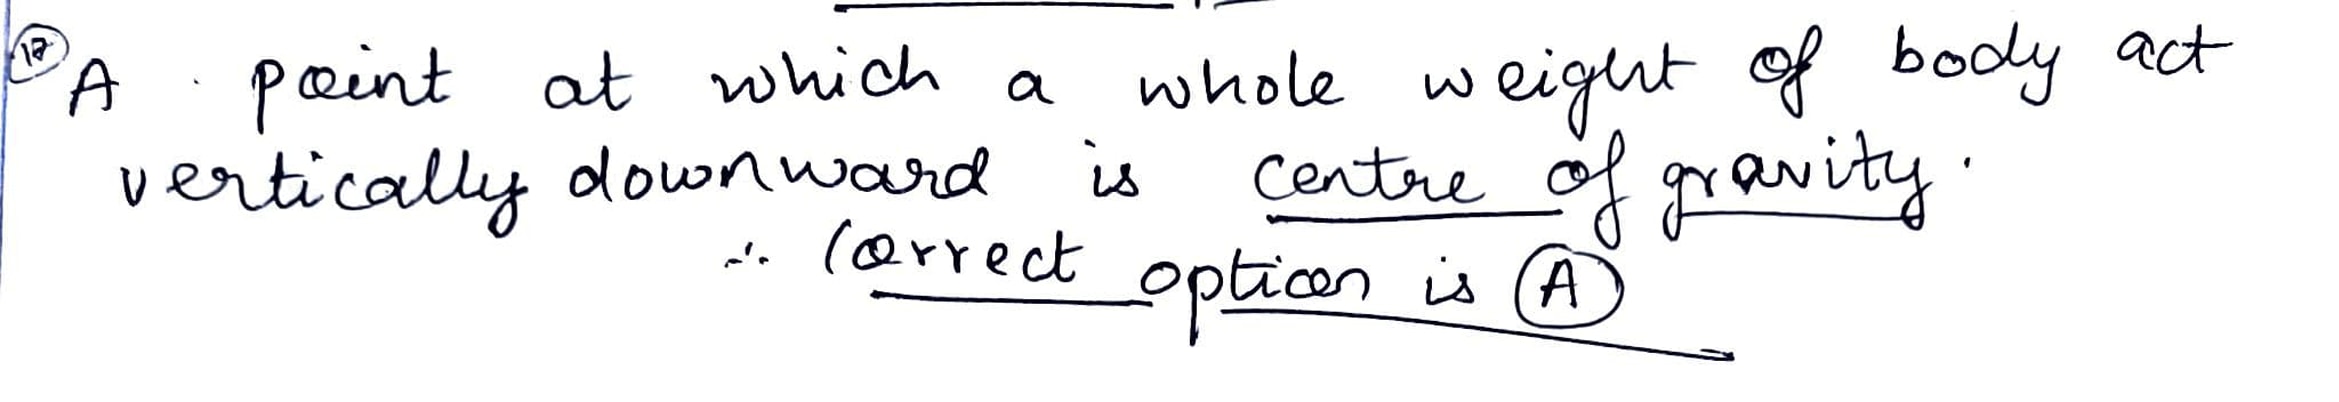 17 A point at which a whole weight of body act
vertically downward is centre of gravity.
∴ Correct option is A